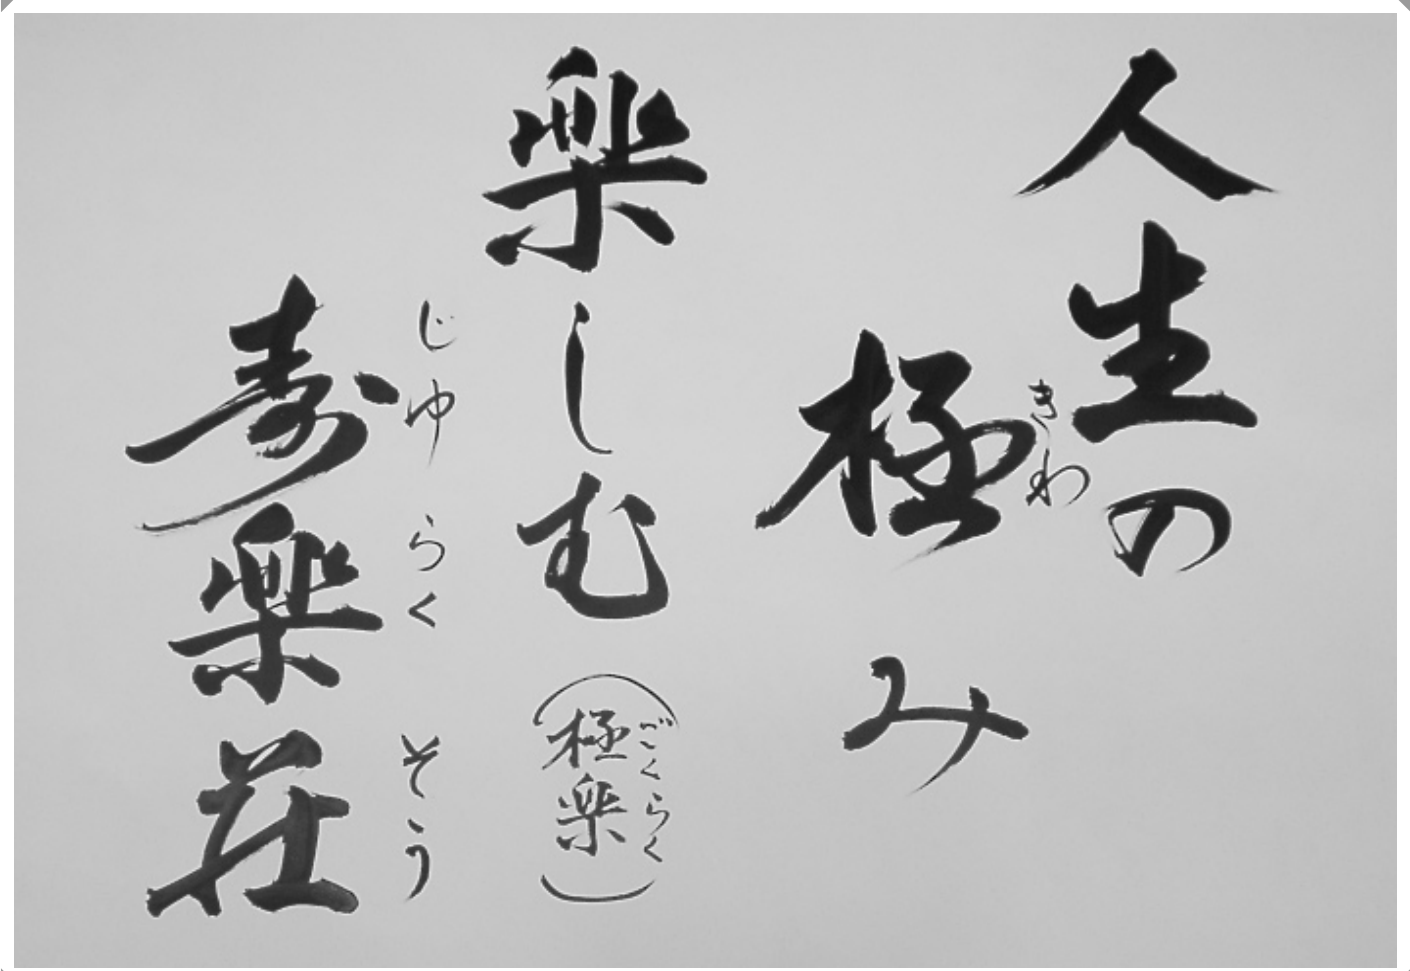 人生の
極み
きわ
楽しむ
(極楽)
ごくらく
寿楽荘
じゅらくそう